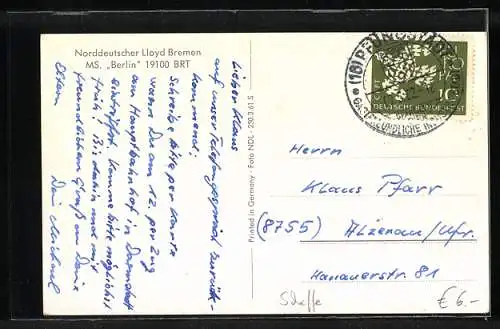 Norddeutscher Lloyd Bremen
MS. „Berlin" 19100 BRT
Lieber Klaus
auf unser Telefongespräch zurück-
kommend:
Schreibe bitte per Karte
wann Du am 12. per Zug
am Hauptbahnhof in Darmstadt
eintriffst. Komme bitte möglichst
früh! Bis dahin noch mit
freundlichem Gruß an Deine
Eltern
Dein Michael
Printed in Germany · Foto NDL · 2303.61.5
(16) PFUNGSTADT
GASTFREUNDLICHE
DEUTSCHE BUNDESPOST
10
Herrn
Klaus Pfarr
(8755) Alzenau/Ufr.
Hanauerstr. 81
€ 6.-